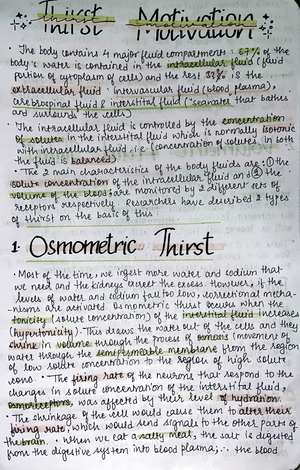 Thirst Motivation
· The body contains 4 major fluid compartments : 67% of the
body's water is contained in the intracellular fluid (fluid
portion of cytoplasm of cells) and the rest 33% is the
extracellular fluid - intravascular fluid (blood plasma),
cerebrospinal fluid & interstitial fluid ("seawater" that bathes
and surrounds the cells)
· The intracellular fluid is controlled by the concentration
of solutes in the interstitial fluid which is normally isotonic
with intracellular fluid, i.e (concentration of solutes in both
the fluid is balanced)
· The 2 main characteristics of the body fluids are : ① the
solute concentration of the intracellular fluid and ② the
volume of the blood are monitored by 2 different sets of
receptors respectively. Researchers have described 2 types
of thirst on the basis of this :
1 Osmometric Thirst
· Most of the time, we ingest more water and sodium that
we need and the kidneys excret the excess. However, if the
levels of water and sodium fall to low, correctional mecha-
-nisms are activated. Osmometric thirst occurs when the
tonicity (solute concentration) of the interstitial fluid increases
(hypertonicity). This draws the water out of the cells and they
shrink in volume through the process of osmosis (movement of
water through the semipermeable membrane from the region
of low solute concentration to the region of high solute
conc · The firing rate of the neurons that respond to the
changes in solute concentration of the interstitial fluid,
osmoreceptors, was affected by their level of hydration.
· The shrinkage of the cell would cause them to alter their
firing rate, which would send signals to the other parts of
the brain. · When we eat a salty meal, the salt is digested
from the digestive system into blood plasma; ∴ the blood